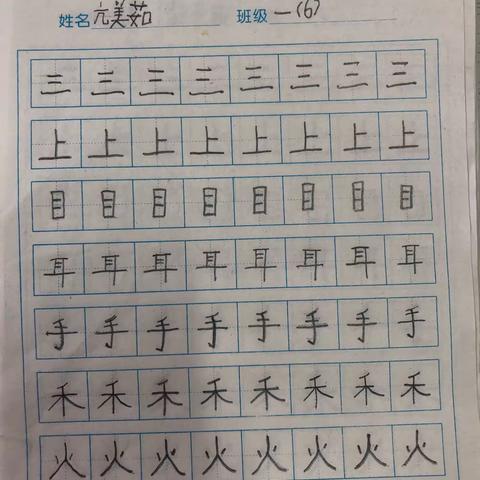 姓名亢美茹 班级一(6)
三三三三三三三三
上上上上上上上上
目目目目目目目目
耳耳耳耳耳耳耳耳
手手手手手手手手
禾禾禾禾禾禾禾禾
火火火火火火火火